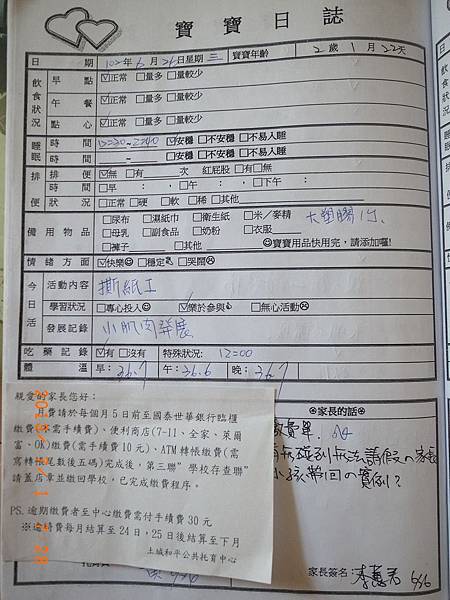 寶寶日誌
日期 102年6月26日星期三 寶寶年齡 2歲1月22天
飲食狀況
早點 ☑正常 □量多 □量較少
午餐 ☑正常 □量多 □量較少
點心 ☑正常 □量多 □量較少
睡眠
時間 12:30-2:40 ☑安穩 □不安穩 □不易入睡
時間 - □安穩 □不安穩 □不易入睡
排便
排便 ☑無 □有 次 紅屁股 □有□無
時間 □早 : □午 : , □下午 :
狀況 □正常 □硬 □軟 □稀 □其他
備用物品
□尿布 □濕紙巾 □衛生紙 □米/麥精 大塑膠1件
□母乳 □副食品 □奶粉 □衣服
□褲子 □其他 ☺寶寶用品快用完,請添加喔!
情緒方面 ☑快樂☺ □穩定 □哭鬧☹
今日活
活動內容 撕紙工
學習狀況 □專心投入☺ ☑樂於參與 □無心活動☹
發展記錄 小肌肉發展
吃藥記錄 ☑有 □沒有 特殊狀況: 12=00
體溫 早: 36.7 午: 36.6 晚: 36.7
親愛的家長您好:
月費請於每個月5日前至國泰世華銀行臨櫃
繳費(不需手續費)、便利商店(7-11、全家、萊爾
富、OK)繳費(需手續費10元)、ATM轉帳繳費(需
寫轉帳尾數後五碼)完成後,第三聯"學校存查聯"
請蓋店章並繳回學校,已完成繳費程序。
PS.逾期繳費者至中心繳費需付手續費30元
※臨時費每月結算至24日,25日後結算至下月
土城和平公共托育中心
⊙家長的話⊙
繳費單.
有無碰到無法請假の家長
小孩帶回の實例?
家長簽名: 李蕙君 6/26